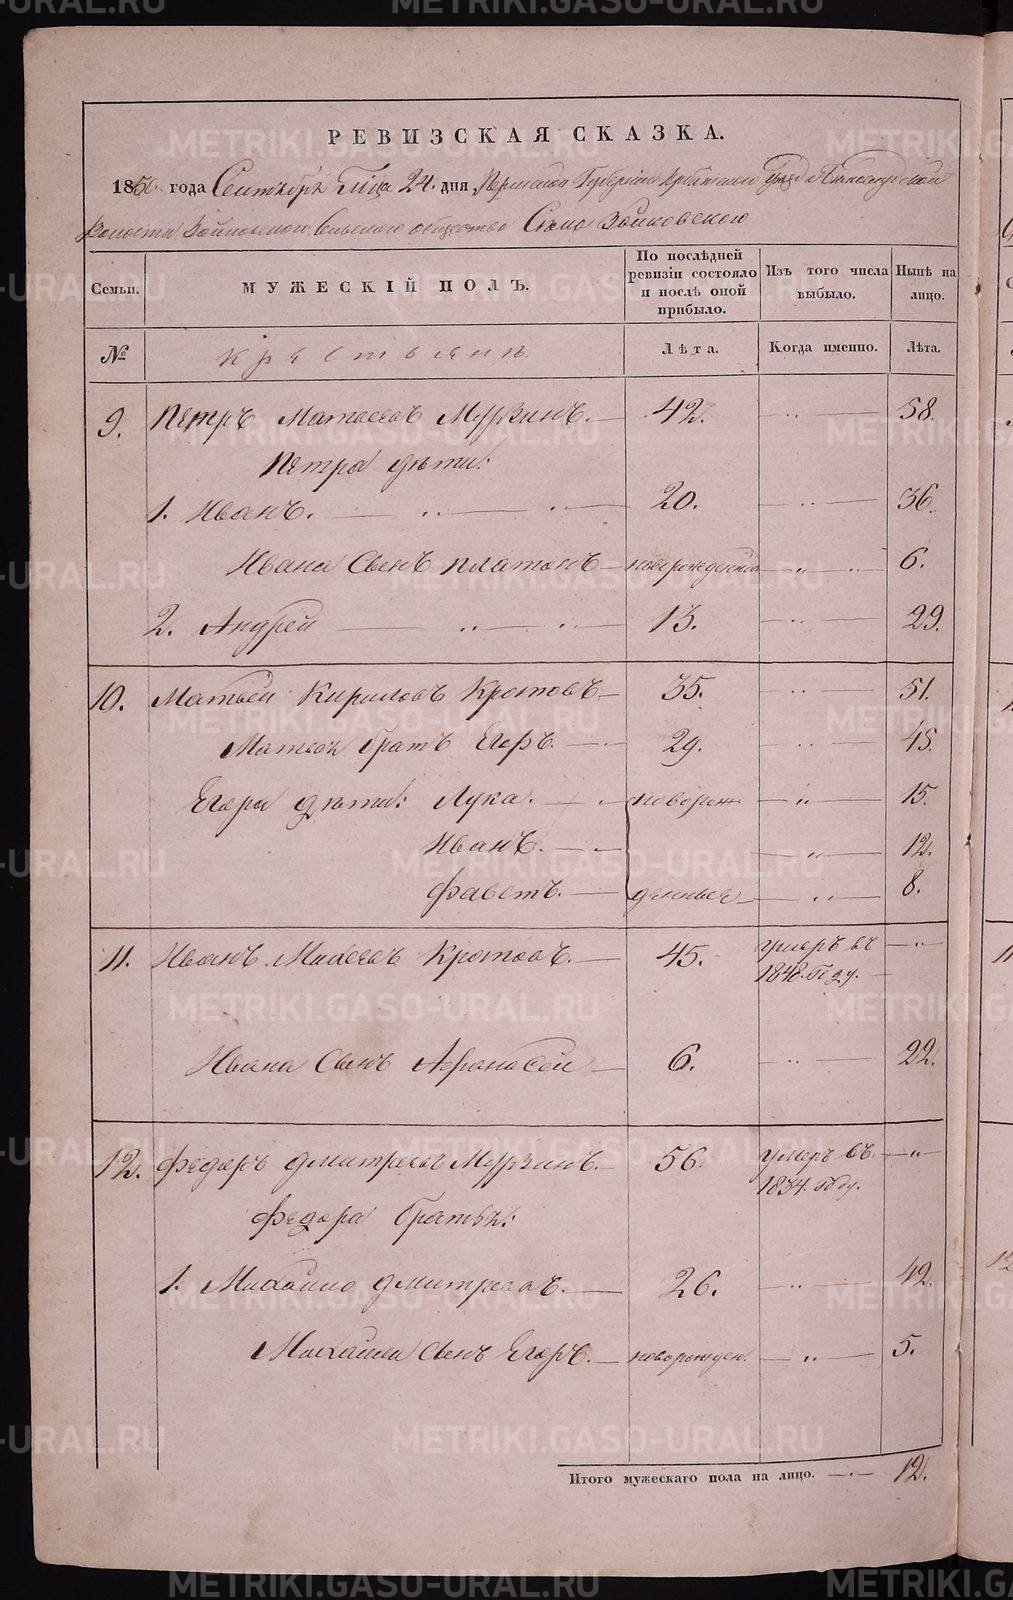 РЕВИЗСКАЯ СКАЗКА.
1850 года Сентября м͠ца 24. дня, Пермской Губернии Ирбитской уезда
Волости, Зайковского Сельского общества Села Зайковского
Семьи. МУЖЕСКІЙ ПОЛЪ. По послѣдней ревизіи состояло и послѣ оной прибыло. Изъ того числа выбыло. Нынѣ на лицо.
№ крестьянъ Лѣта. Когда именно. Лѣта.
9. Петръ Матвеевъ Мурзинъ. 42. — ·· — 58.
Петра дѣти:
1. Иванъ. — ·· — ·· — 20. — ·· — 36.
Ивана Сынъ Платонъ — новорожденный — ·· — ·· 6.
2. Андрей — ·· — ·· — 13. — ·· — 29.
10. Матвей Кириловъ Кротовъ — 35. — ·· — 51.
Матвея братъ Егоръ. — 29. — ·· — 45.
Егора дѣти: Лука. — новорож — ·· — 15.
Иванъ. — — ·· — 12.
Фавстъ. — денные — ·· — 8.
11. Иванъ Михеевъ Кротовъ. — 45. умеръ въ — ·· —
1848. году. —
Ивана Сынъ Афонасей — 6. — ·· — 22.
12. Федоръ Дмитревъ Мурзинъ. — 56. умеръ въ. — ·· —
1834. году.
Федора братья:
1. Михайло Дмитревъ. — 26. — ·· — 42.
Михайла Сынъ Егоръ. — новорожден. — ·· — 5.
Итого мужескаго пола на лицо. — ·· — 12.
METRIKI.GASO-URAL.RU